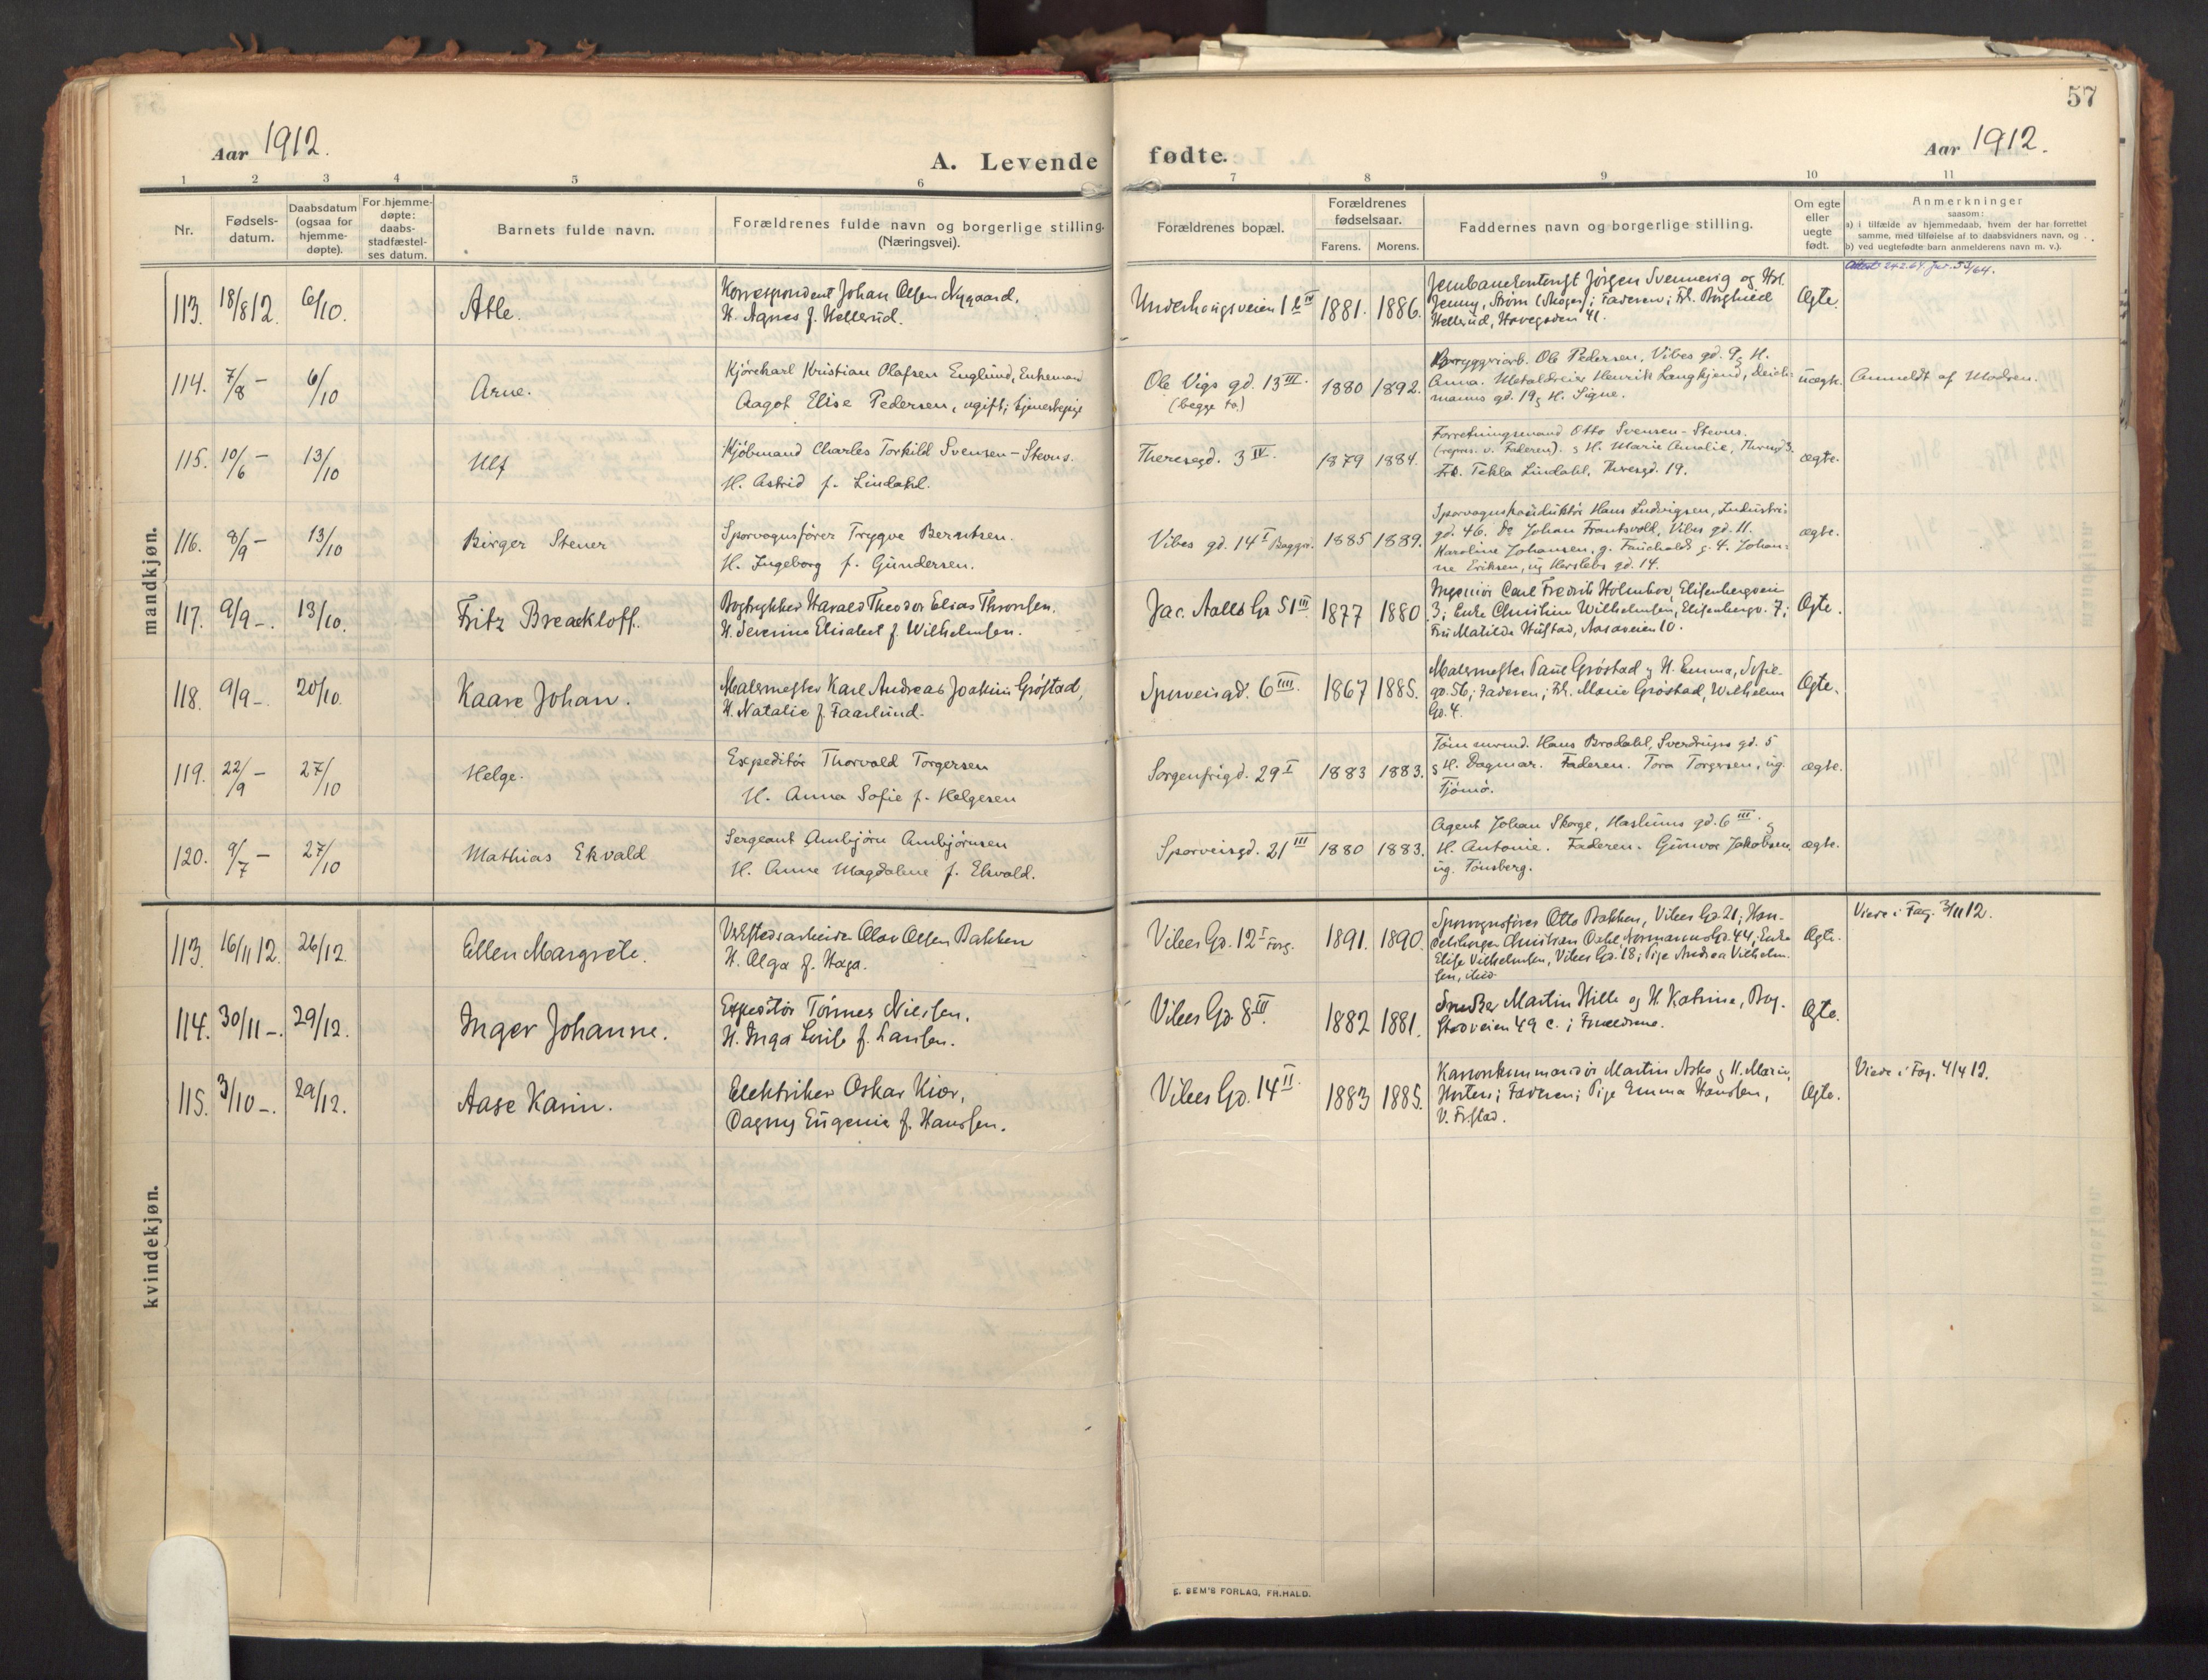 57
Aar 1912.
A. Levende fødte.
Aar 1912.
1 2 3 4 5 6 7 8 9 10 11
Nr.
Fødsels-
datum.
Daabsdatum
(ogsaa for
hjemme-
døpte).
For hjemme-
døpte:
daabs-
stadfæstel-
ses datum.
Barnets fulde navn.
Forældrenes fulde navn og borgerlige stilling.
(Næringsvei).
Forældrenes bopæl.
Forældrenes
fødselsaar.
Farens. Morens.
Faddernes navn og borgerlige stilling.
Om egte
eller
uegte
født.
Anmerkninger
saasom:
a) i tilfælde av hjemmedaab, hvem der har forrettet
samme, med tilføielse af to daabsvidners navn, og
b) ved uegtefødte barn anmelderens navn m. v.).
mandkjøn.
113. 18/8 12. 6/10. Atle.
Korrespondent Johan Olsen Nygaard.
H. Agnes f. Hellerud.
Underhaugsveien 12 IV 1881. 1886.
Jørgen Svennevig og
Jenny, Strøm (Skoger); Faderen; Frk. Borghild
Hellerud, 41.
Ægte.
114. 7/8 – 6/10 Arne.
Kjørekarl Kristian Olafsen Englund, Enkemand
Aagot Elise Pedersen, ugift; tjenestepige
Ole Vigs gd. 13 III.
(begge to)
1880 1892.
Ole Pedersen, Vibes gd. 9 g H.
Anna. Henrik Langkjend, Deich-
manns gd. 19 g H. Signe.
uægte. Anmeldt af Modren.
115. 10/6 – 13/10 Ulf
Kjøbmand Charles Torkild Svensen-Stevns.
H. Astrid f. Lindahl.
Theresegd. 3 IV. 1879 1884.
Forretningsmand Otto Svensen-Stevns.
(repres. v. Faderen). g H. Marie Amalie,
Frk. Tekla Lindahl, Thresgd. 19.
ægte.
116. 8/9 – 13/10 Birger Stener
Sporvognsfører Trygve Berntsen.
H. Ingeborg f. Gundersen.
Vibes gd. 14 I Baggr. 1885 1889.
Sporvognskonduktør Hans Ludvigsen, Industri-
gd. 46. Do Johan Frantsvold, Vibes gd. 11.
Karoline Johansen, g. Fauchalds g. 4. Johan-
ne Eriksen, ug Herslebs gd. 14.
ægte.
117. 9/9 –. 13/10. Fritz Breackloff.
Bogtrykker Harald Theodor Elias Thronsen.
H. Severine Elisabet f. Wilhelmsen.
Jac. Aalls Gd 51 III 1877 1880.
Ingeniør Carl Fredrik Holmboe, Elisenbergvein
3; Enke Christine Wilhelmsen, Elisenbergv. 7;
Fru Matilde Hustad, Aasaveien 10.
Ægte.
118. 9/9 –. 20/10. Kaare Johan.
Malermester Karl Andreas Joakim Grøstad,
H. Natalie f. Faarlund.
Sporveisgd. 6 III. 1867 1885.
Malermester Paul Grøstad g H. Emma, Sofie-
gd. 56; Faderen; Frk. Marie Grøstad, Wilhelms
Gd. 4.
Ægte.
119. 22/9 – 27/10 Helge.
Expeditør Thorvald Torgersen
H. Anna Sofie f. Helgesen
Sorgenfrigd. 29 I 1883 1883.
Tømmermd. Hans Brodahl, Sverdrups gd. 5
g H. Dagmar. Faderen. Tora Torgersen, ug.
Tjømø.
ægte.
120. 9/7 – 27/10 Mathias Ekvald
Sergeant Arnbjørn Arnbjørnsen
H. Anne Magdalene f. Ekvald.
Sporveisgd. 21 III 1880 1883.
Agent Johan Skorge, Haslums gd. 6 III. g
H. Antonie. Faderen. Gunvor Jakobsen,
ug. Tønsberg.
ægte.
kvindekjøn.
113. 16/11 12. 26/12. Ellen Margrete.
Verkstedsarbeider Olav Olsen Bakken
H. Olga f. Haga.
Vibes Gd. 12 I Forg. 1891. 1890.
Sporvognsfører Otto Bakken, Vibes Gd. 21; Han-
delsborger Christian Dahl, Normannsgd. 44; Enke
Elise Vilhelmsen, Vibes Gd. 18; Pige Andrea Vilhelm-
sen,
Ægte. Viede i Fag. 3/11 12.
114. 30/11 –. 29/12. Inger Johanne.
Expeditør Tønnes Nielsen.
H. Inga Louise f. Larsen.
Vibes Gd 8 III. 1882 1881.
Snedker Martin Hille og H. Katrine, Bog-
stadveien 49 c.; Forældrene.
Ægte.
115. 3/10 –. 29/12. Aase Karin.
Elektriker Oskar Kiær,
Dagny Eugenie f. Hansen.
Vibes Gd. 14 II. 1883 1885.
Martin Asko g H. Marie,
Horten; Faderen; Pige Emma Hansen,
V. Fr.stad.
Ægte. Viede i Fag. 4/4 12.
E. SEM'S FORLAG, FR.HALD.